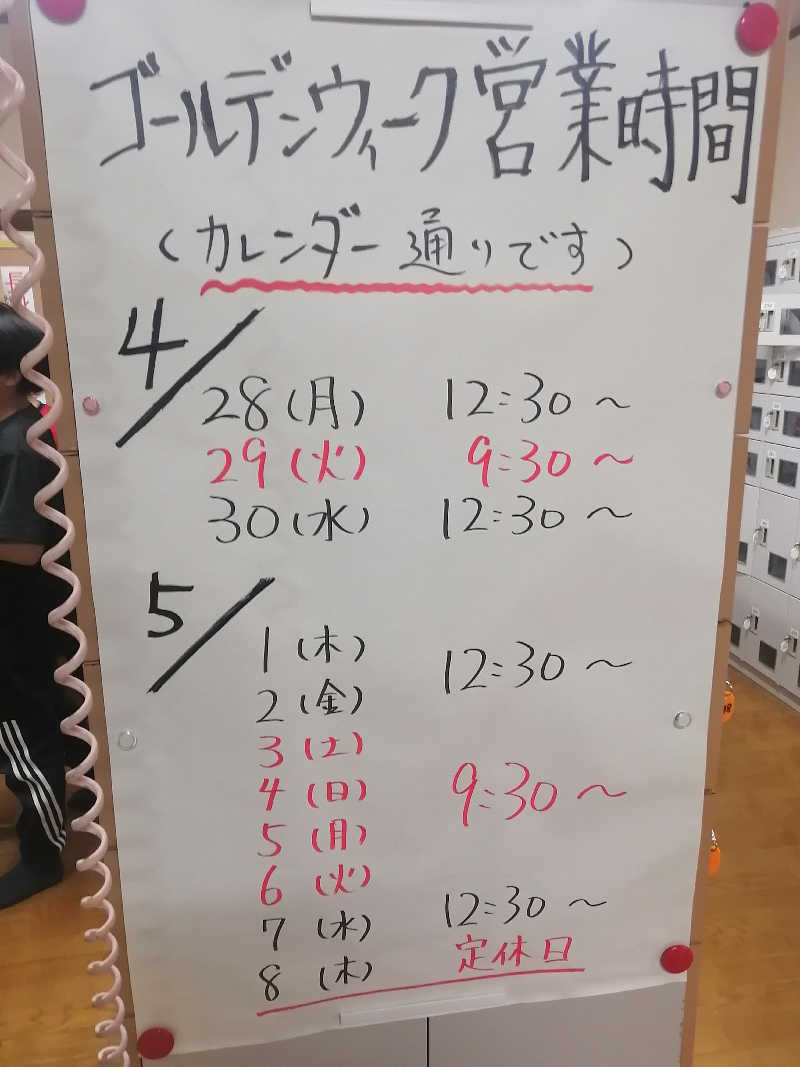 ゴールデンウィーク営業時間
(カレンダー通りです)
4/
28(月) 12:30~
29(火) 9:30~
30(水) 12:30~
5/
1(木)
2(金) 12:30~
3(土)
4(日) 9:30~
5(月)
6(火)
7(水) 12:30~
8(木) 定休日